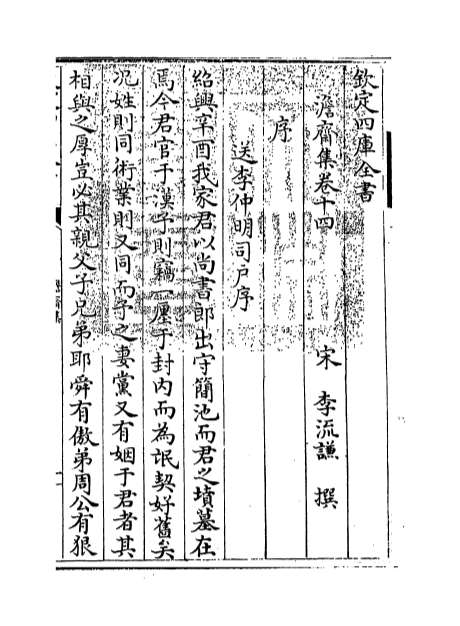 欽定四庫全書
澹齋集卷十四
宋 李流謙 撰
序
送李仲明司戶序
紹興辛酉我家君以尚書郎出守簡池而君之墳墓在
焉今君官于漢予則竊一廛于封内而為氓契好舊矣
况姓則同術業則又同而予之妻黨又有姻于君者其
相與之厚豈必其親父子兄弟耶舜有傲弟周公有狠